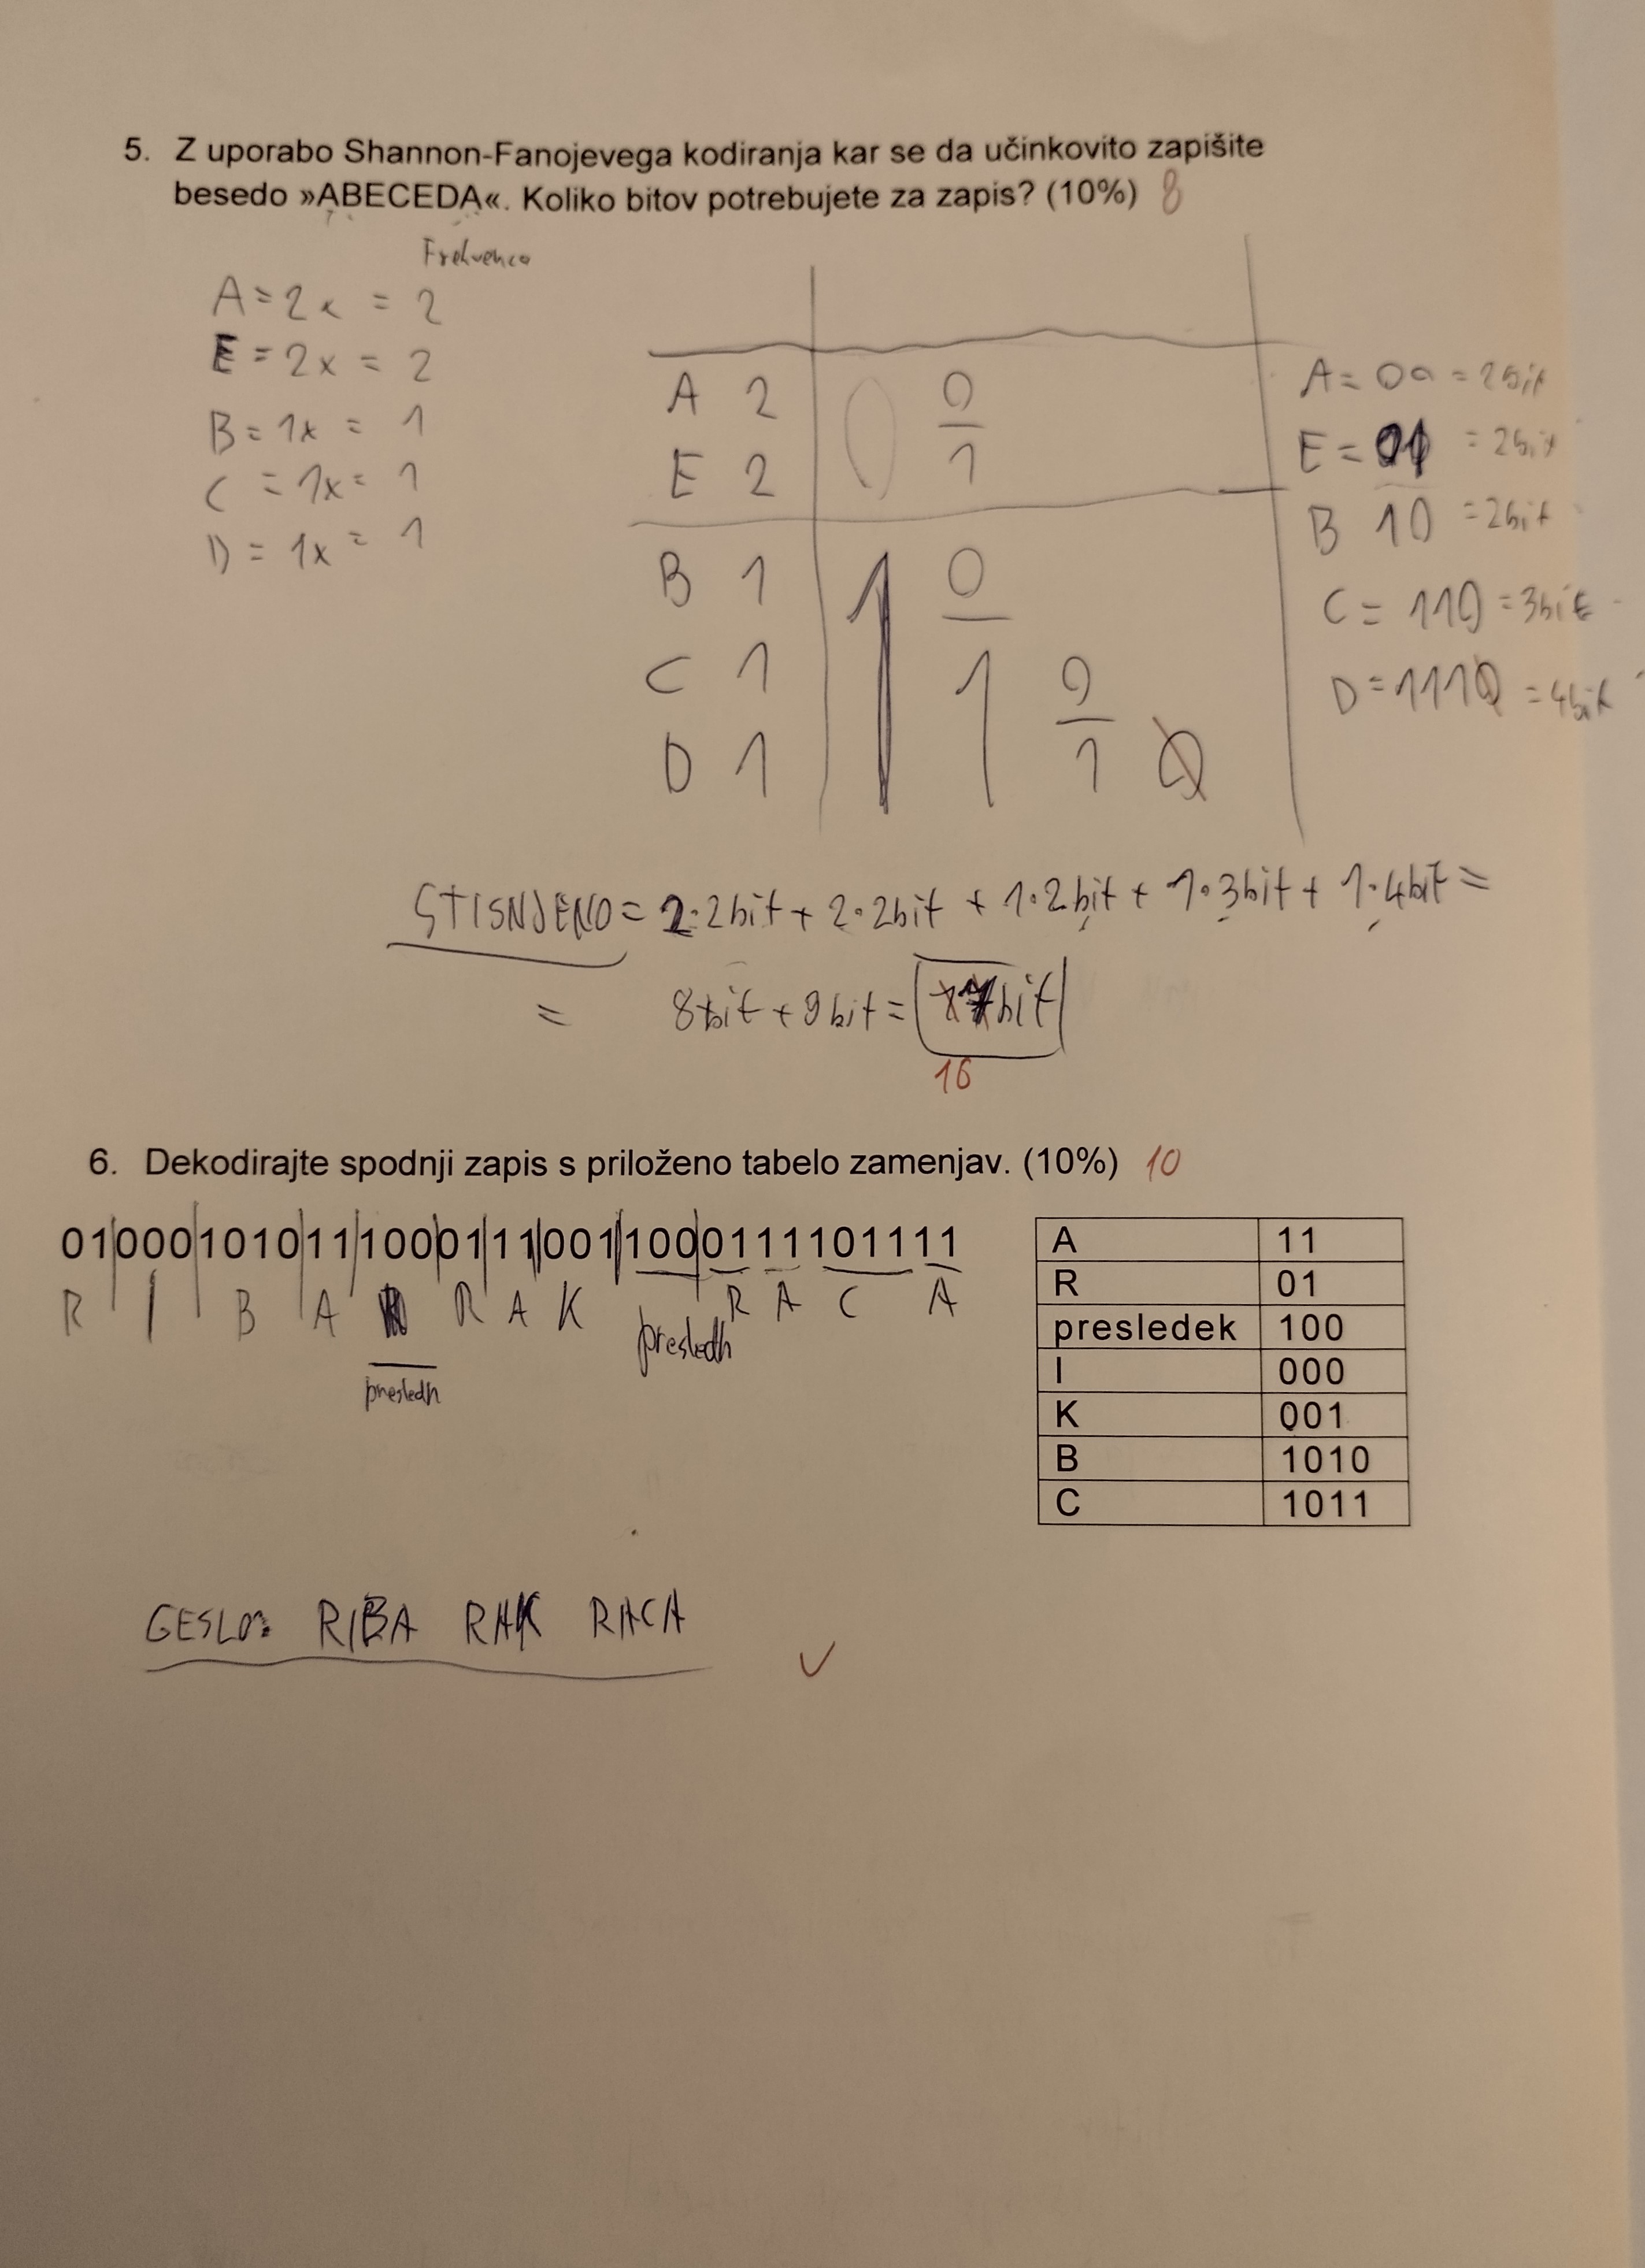 5. Z uporabo Shannon-Fanojevega kodiranja kar se da učinkovito zapišite
besedo »ABECEDA«. Koliko bitov potrebujete za zapis? (10%) 8
Frekvenca
A = 2x = 2
E = 2x = 2
B = 1x = 1
C = 1x = 1
D = 1x = 1
A 2 0 0
E 2 1
B 1 1 0
C 1 1 0
D 1 1 0
A = 00 = 2bit
E = 01 = 2bit
B 10 = 2bit
C = 110 = 3bit
D = 1110 = 4bit
STISNJENO = 2·2bit + 2·2bit + 1·2bit + 1·3bit + 1·4bit =
= 8bit + 9bit = 17bit
16
6. Dekodirajte spodnji zapis s priloženo tabelo zamenjav. (10%) 10
01|000|1010|11|100|01|11|001|100|0111101111
R I B A R A K R A C A
presledk
presledk
A 11
R 01
presledek 100
I 000
K 001
B 1010
C 1011
GESLO: RIBA RAK RACA ✓